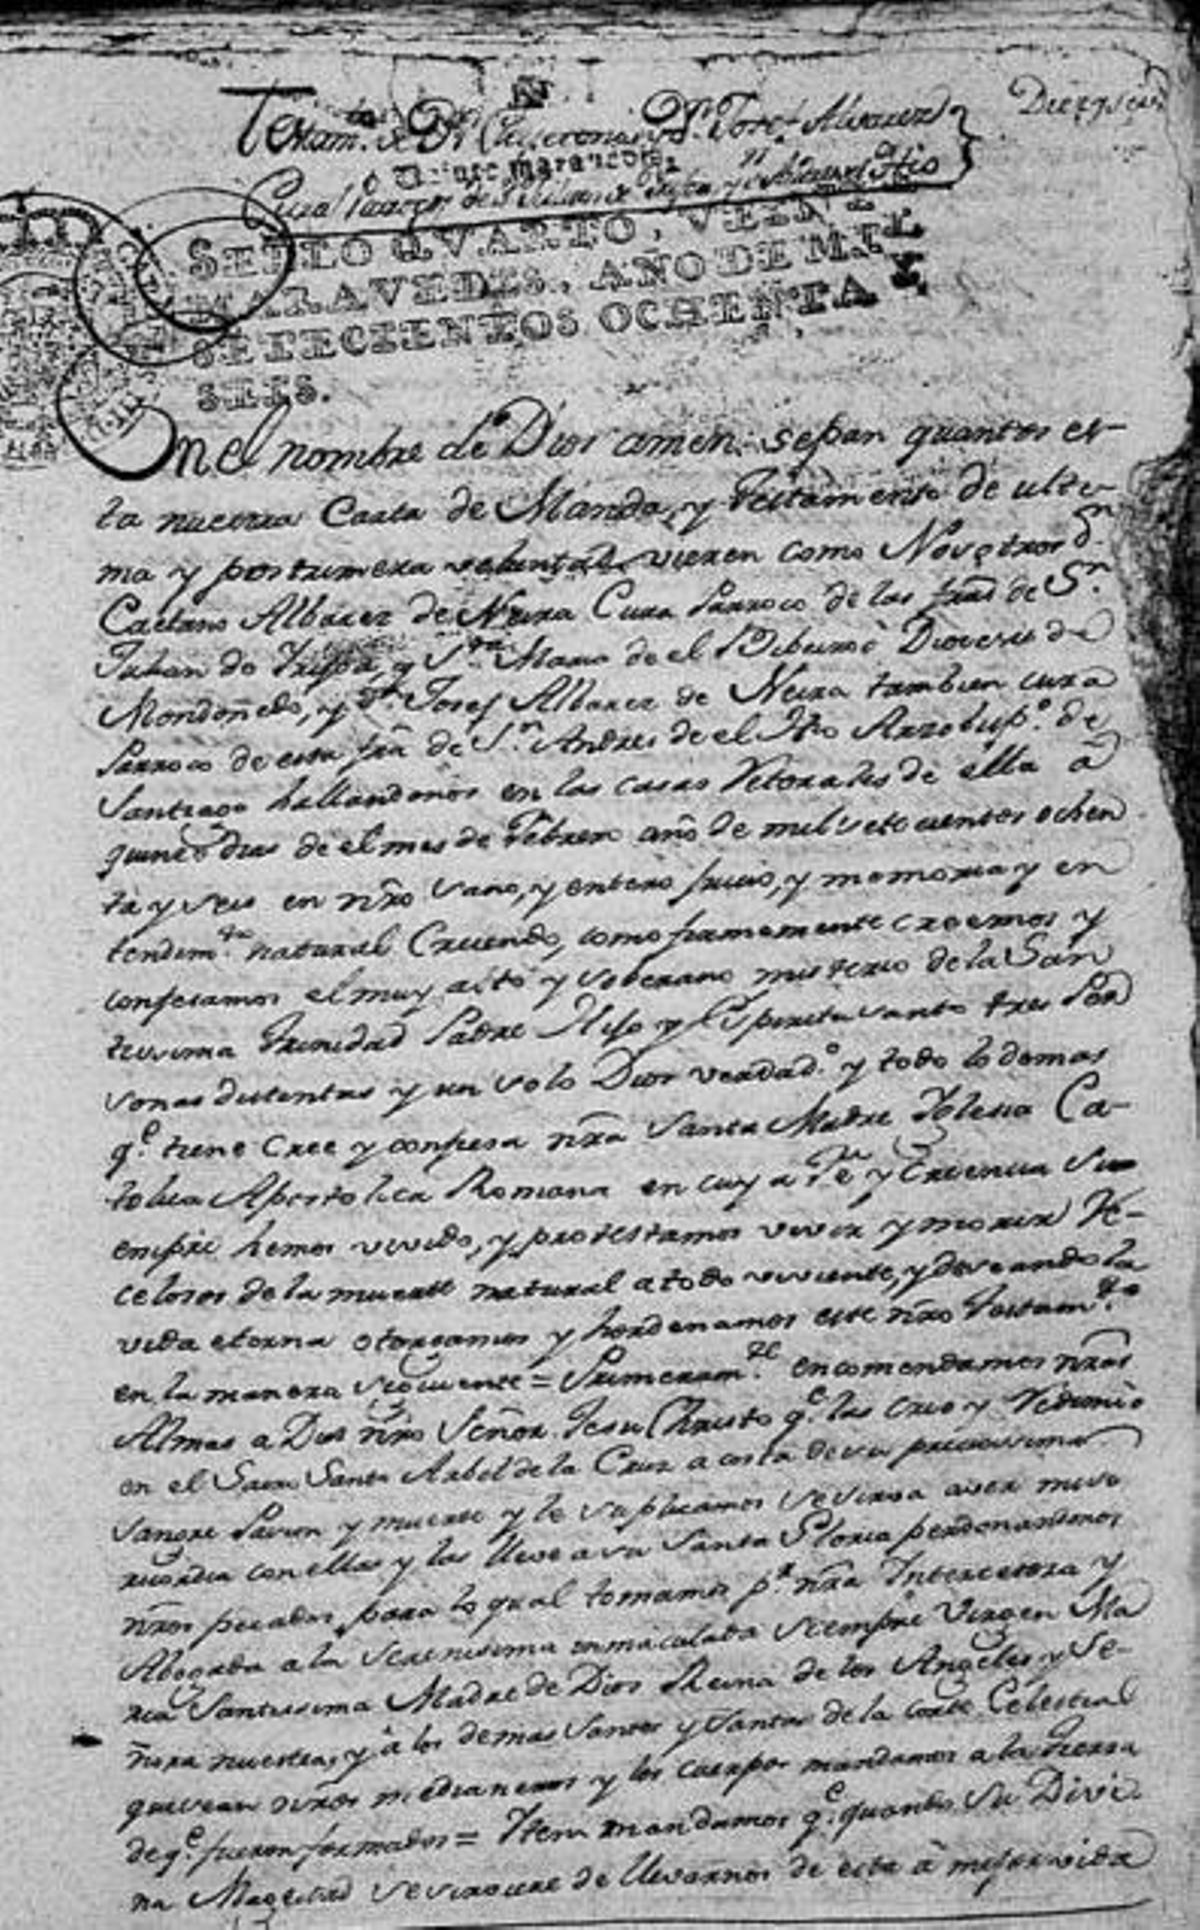 Testam.to de D.n Caietano y D.n Josef Alvarez
Diez y seis
Curas Parrocos de S. Julian de y S.n Andres del Hio
SELLO QVARTO, VEINTE
MARAVEDIS, AÑO DE MIL
SETECIENTOS OCHENTA Y
SEIS.
En el nombre de Dios amen: sepan quantos es-
ta nuestra Carta de Manda, y Testamento de ulti-
ma y postrimera voluntad vieren como Nosotros d.n
Caetano Albarez de Neira Cura Parroco de las frās de S.n
Julian de y S.ta Maria de el Diocesis de
Mondoñedo, y d.n Josef Albarez de Neira tambien cura
Parroco de esta frā de S.n Andres de el Hio Arzobisp.o de
Santiago hallandonos en las casas Retorales de ella â
quince dias de el mes de Febrero año de mil setecientos ochen
ta y seis en nr̄o sano, y entero juicio, y memoria y en
tendim.to natural Creiendo, como firmemente creemos y
confesamos el muy alto y soberano misterio de la San
tissima Trinidad Padre Hijo y Espiritu santo tres Per
sonas distintas y un solo Dios verdad.o y todo lo demas
q.e tiene Cree y confiesa nr̄a Santa Madre Iglesia Ca-
tolica Apostolica Romana en cuya Fe y Creencia Si
empre hemos vivido, y protestamos vivir y morir Re-
celosos de la muerte natural a todo viviente, y deseando la
vida eterna otorgamos y hordenamos este nr̄o Testam.to
en la manera siguiente = Primeram.te encomendamos nr̄as
Almas a Dios nr̄o Señor Jesu Christo q.e las crio y redimio
en el Sacro Santo Arbol de la Cruz a costa de su preciosisima
sangre Pasion y muerte y le suplicamos se sirva aver mise
ricordia con ellas y las lleve a su Santa Gloria perdonandonos
nr̄os pecados, para lo qual tomamos p.r nr̄a Intercesora y
Abogada a la Serenisima inmaculada siempre Virgen Ma
ria Santissima Madre de Dios Reina de los Angeles y Se-
ñora nuestra, y â los demas Santos y Santas de la corte Celestial
que sean nr̄os medianeros y los cuerpos mandamos a la tierra
de q.e fueron formados = Item mandamos q.e quando Su Divi
na Magestad se sirviere de llevarnos de esta â mejor vida